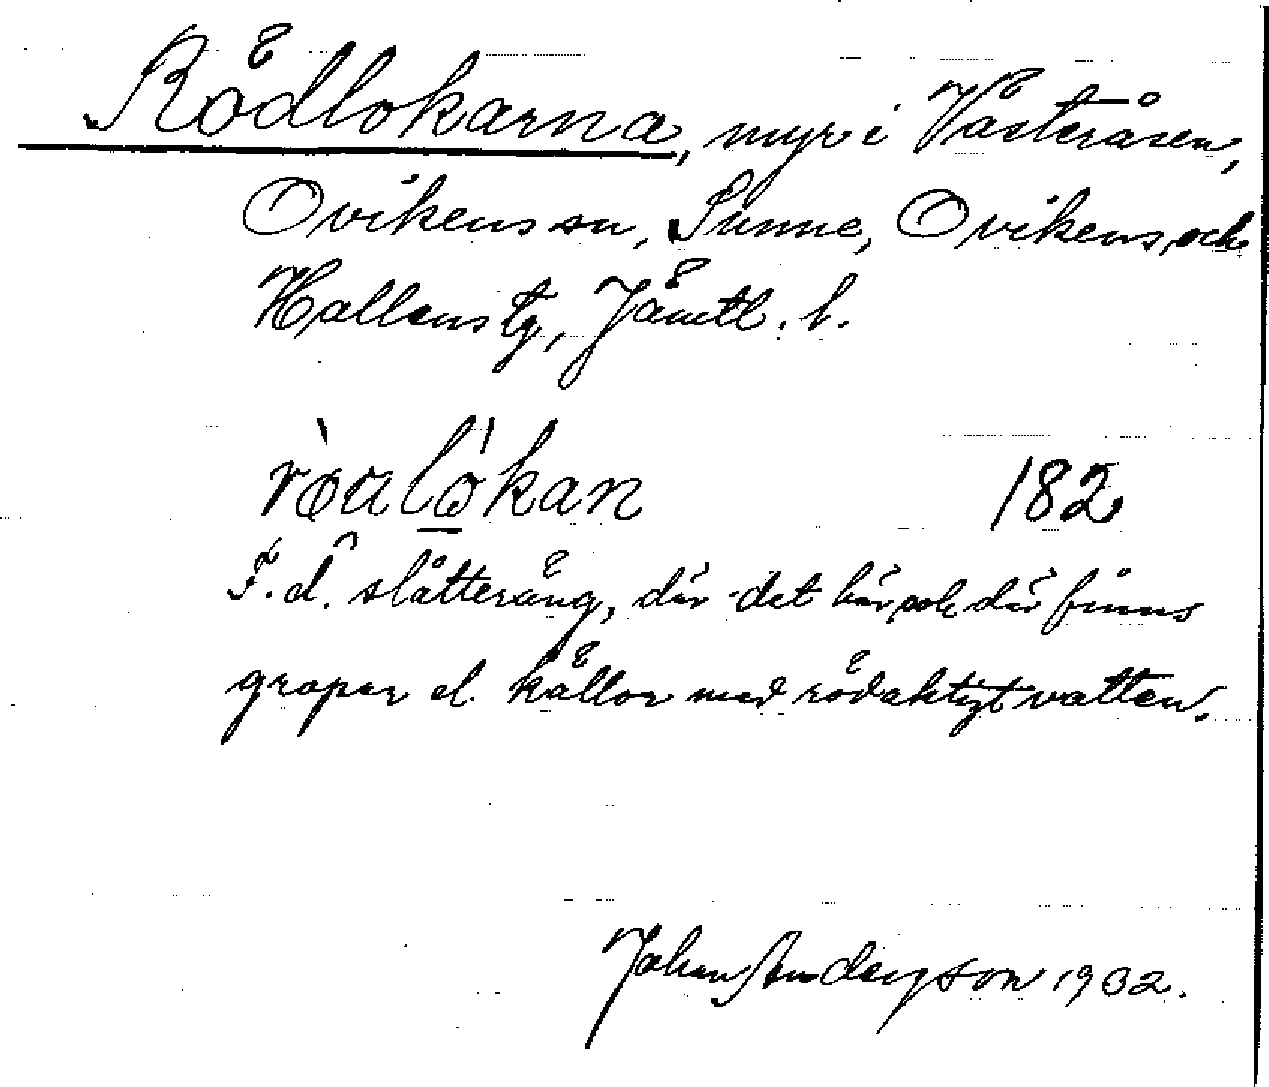 Rödlokarna, myr i Västeråsen,
Ovikens sn, Sunne, Ovikens och
Hallens tg, Jämtl. l.
182
F. d. slåtteräng, där det här och där finns
gropar el. källor med rödaktigt vatten.
Johan Anderson 1932.